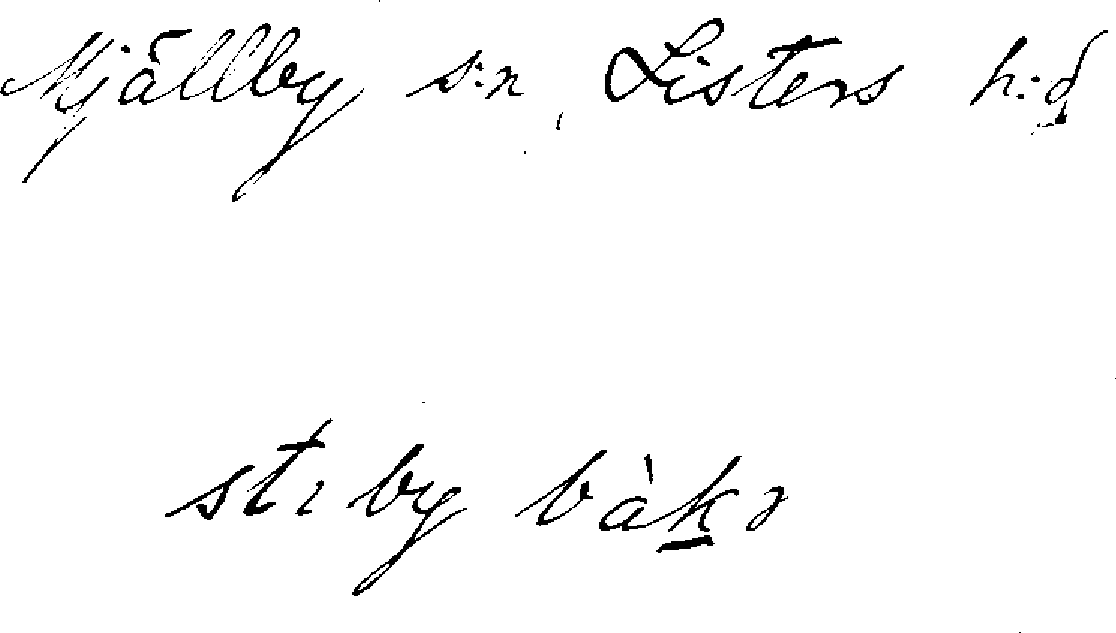 Mjällby s:n, Listers h:d
st. by bàkə